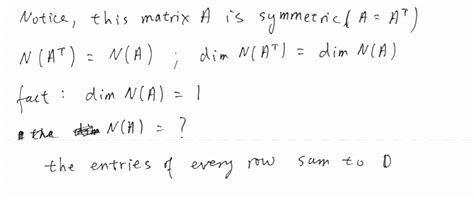 Notice, this matrix A is symmetric ( A = Aᵀ)
N(Aᵀ) = N(A) ; dim N(Aᵀ) = dim N(A)
fact : dim N(A) = 1
the N(A) = ?
the entries of every row sum to 0